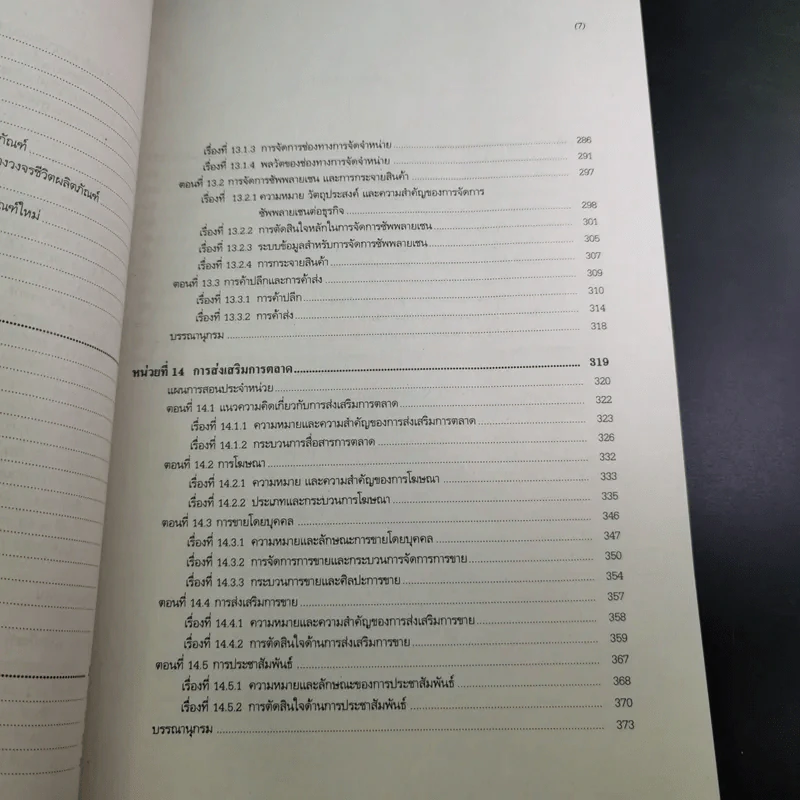 ภัณฑ์
งวงจรชีวิตผลิตภัณฑ์
ณฑ์ใหม่
(7)
เรื่องที่ 13.1.3 การจัดการช่องทางการจัดจำหน่าย 286
เรื่องที่ 13.1.4 พลวัตของช่องทางการจัดจำหน่าย 291
ตอนที่ 13.2 การจัดการซัพพลายเชน และการกระจายสินค้า 297
เรื่องที่ 13.2.1 ความหมาย วัตถุประสงค์ และความสำคัญของการจัดการ
ซัพพลายเชนต่อธุรกิจ 298
เรื่องที่ 13.2.2 การตัดสินใจหลักในการจัดการซัพพลายเชน 301
เรื่องที่ 13.2.3 ระบบข้อมูลสำหรับการจัดการซัพพลายเชน 305
เรื่องที่ 13.2.4 การกระจายสินค้า 307
ตอนที่ 13.3 การค้าปลีกและการค้าส่ง 309
เรื่องที่ 13.3.1 การค้าปลีก 310
เรื่องที่ 13.3.2 การค้าส่ง 314
บรรณานุกรม 318
หน่วยที่ 14 การส่งเสริมการตลาด 319
แผนการสอนประจำหน่วย 320
ตอนที่ 14.1 แนวความคิดเกี่ยวกับการส่งเสริมการตลาด 322
เรื่องที่ 14.1.1 ความหมายและความสำคัญของการส่งเสริมการตลาด 323
เรื่องที่ 14.1.2 กระบวนการสื่อสารการตลาด 326
ตอนที่ 14.2 การโฆษณา 332
เรื่องที่ 14.2.1 ความหมาย และความสำคัญของการโฆษณา 333
เรื่องที่ 14.2.2 ประเภทและกระบวนการโฆษณา 335
ตอนที่ 14.3 การขายโดยบุคคล 346
เรื่องที่ 14.3.1 ความหมายและลักษณะการขายโดยบุคคล 347
เรื่องที่ 14.3.2 การจัดการการขายและกระบวนการจัดการการขาย 350
เรื่องที่ 14.3.3 กระบวนการขายและศิลปะการขาย 354
ตอนที่ 14.4 การส่งเสริมการขาย 357
เรื่องที่ 14.4.1 ความหมายและความสำคัญของการส่งเสริมการขาย 358
เรื่องที่ 14.4.2 การตัดสินใจด้านการส่งเสริมการขาย 359
ตอนที่ 14.5 การประชาสัมพันธ์ 367
เรื่องที่ 14.5.1 ความหมายและลักษณะของการประชาสัมพันธ์ 368
เรื่องที่ 14.5.2 การตัดสินใจด้านการประชาสัมพันธ์ 370
บรรณานุกรม 373